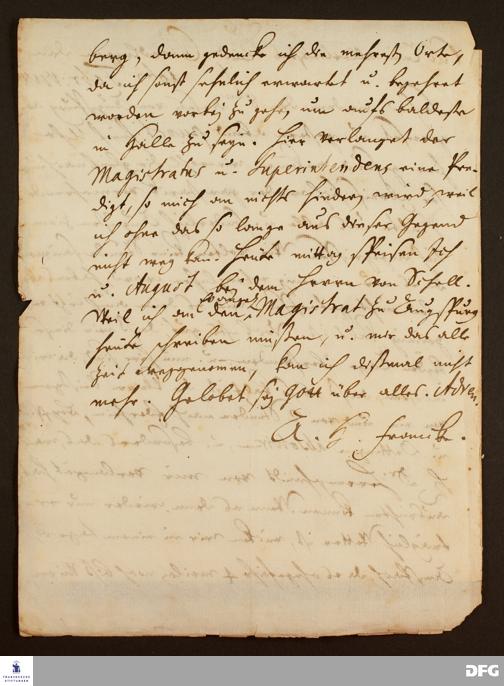 berg, dann gedencke ich die mehresten Orte,
da ich sonst sehnlich erwartet u. begehret
worden vorbey zu gehen, um aufs baldeste
in Halle zu seyn. Hier verlanget der
Magistratus u. Superintendens eine Pre-
digt, so mich an nichts hindern wird, weil
ich ohne das so lange aus dieser Gegend
nicht weg kan. Heute mittag speisen Ich
u. August bey dem Herrn von Schell.
Weil ich an den Evangel. Magistrat zu Augspurg
heute schreiben müssen, u. mir das alle
Zeit weggenommen, kan ich dißmal nicht
mehr. Gelobet sey Gott über alles. Adieu.
A. H. Francke.
FRANCKESCHE
STIFTUNGEN
DFG